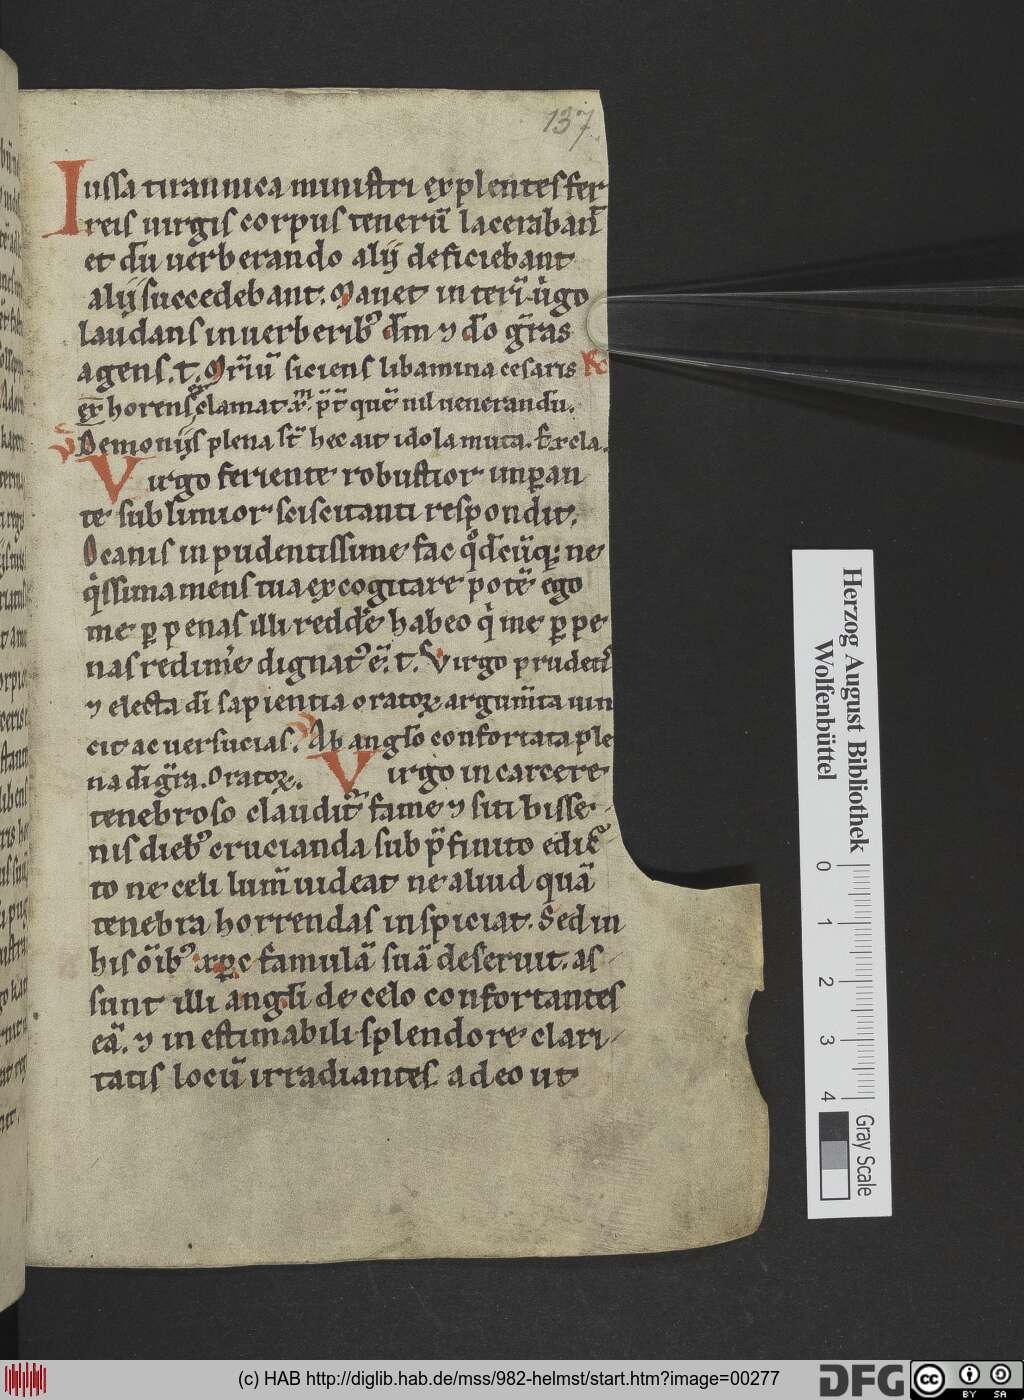 137
Iussa tirannica ministri explentes fer
reis uirgis corpus tenerū lacerabant̄
et dū uerberando alij deficiebant
alij succedebant. Manet interī uǐgo
laudans in uerberibꝰ dm̄ ⁊ dō gr̄as
agens. t. Mr̄iū siciens libamina cesaris R
ex horens exclamat xp̄m. pr̄t quē nil uenerandū.
V Demonijs plena st̄ hec ait idola muta. Excla.
Virgo feriente robustior imꝑan
te sublimior sciscitanti respondit.
Ocanis inpudentissime fac qd̄cūqꝫ ne
qissima mens tua excogitare potē ego
me ꝑ penas illi redde habeo qi me ꝑ pe
nas redimˀe dignatꝰ ē. t. Virgo prudens
⁊ electa dī sapientia oratoꝝ argum̄ta uin
cit ac uersucias. Ab anglo confortata ple
na dī gr̄a. Oratoꝝ. Virgo in carcere
tenebroso claudit̄ fame ⁊ siti bisse
nis diebꝰ crucianda sub p̄finito edic
to ne celi lum̄ uideat ne aliud quā
tenebra horrendas inspiciat. Sed in
his oībꝰ xp̄c famulā suā deseruit. as
sunt illi angli de celo confortantes
eā. ⁊ inestimabili splendore clari
tatis locū irradiantes adeo ut
Herzog August Bibliothek
Wolfenbüttel
0 1 2 3 4
Gray Scale
(c) HAB http://diglib.hab.de/mss/982-helmst/start.htm?image=00277
DFG
cc BY SA